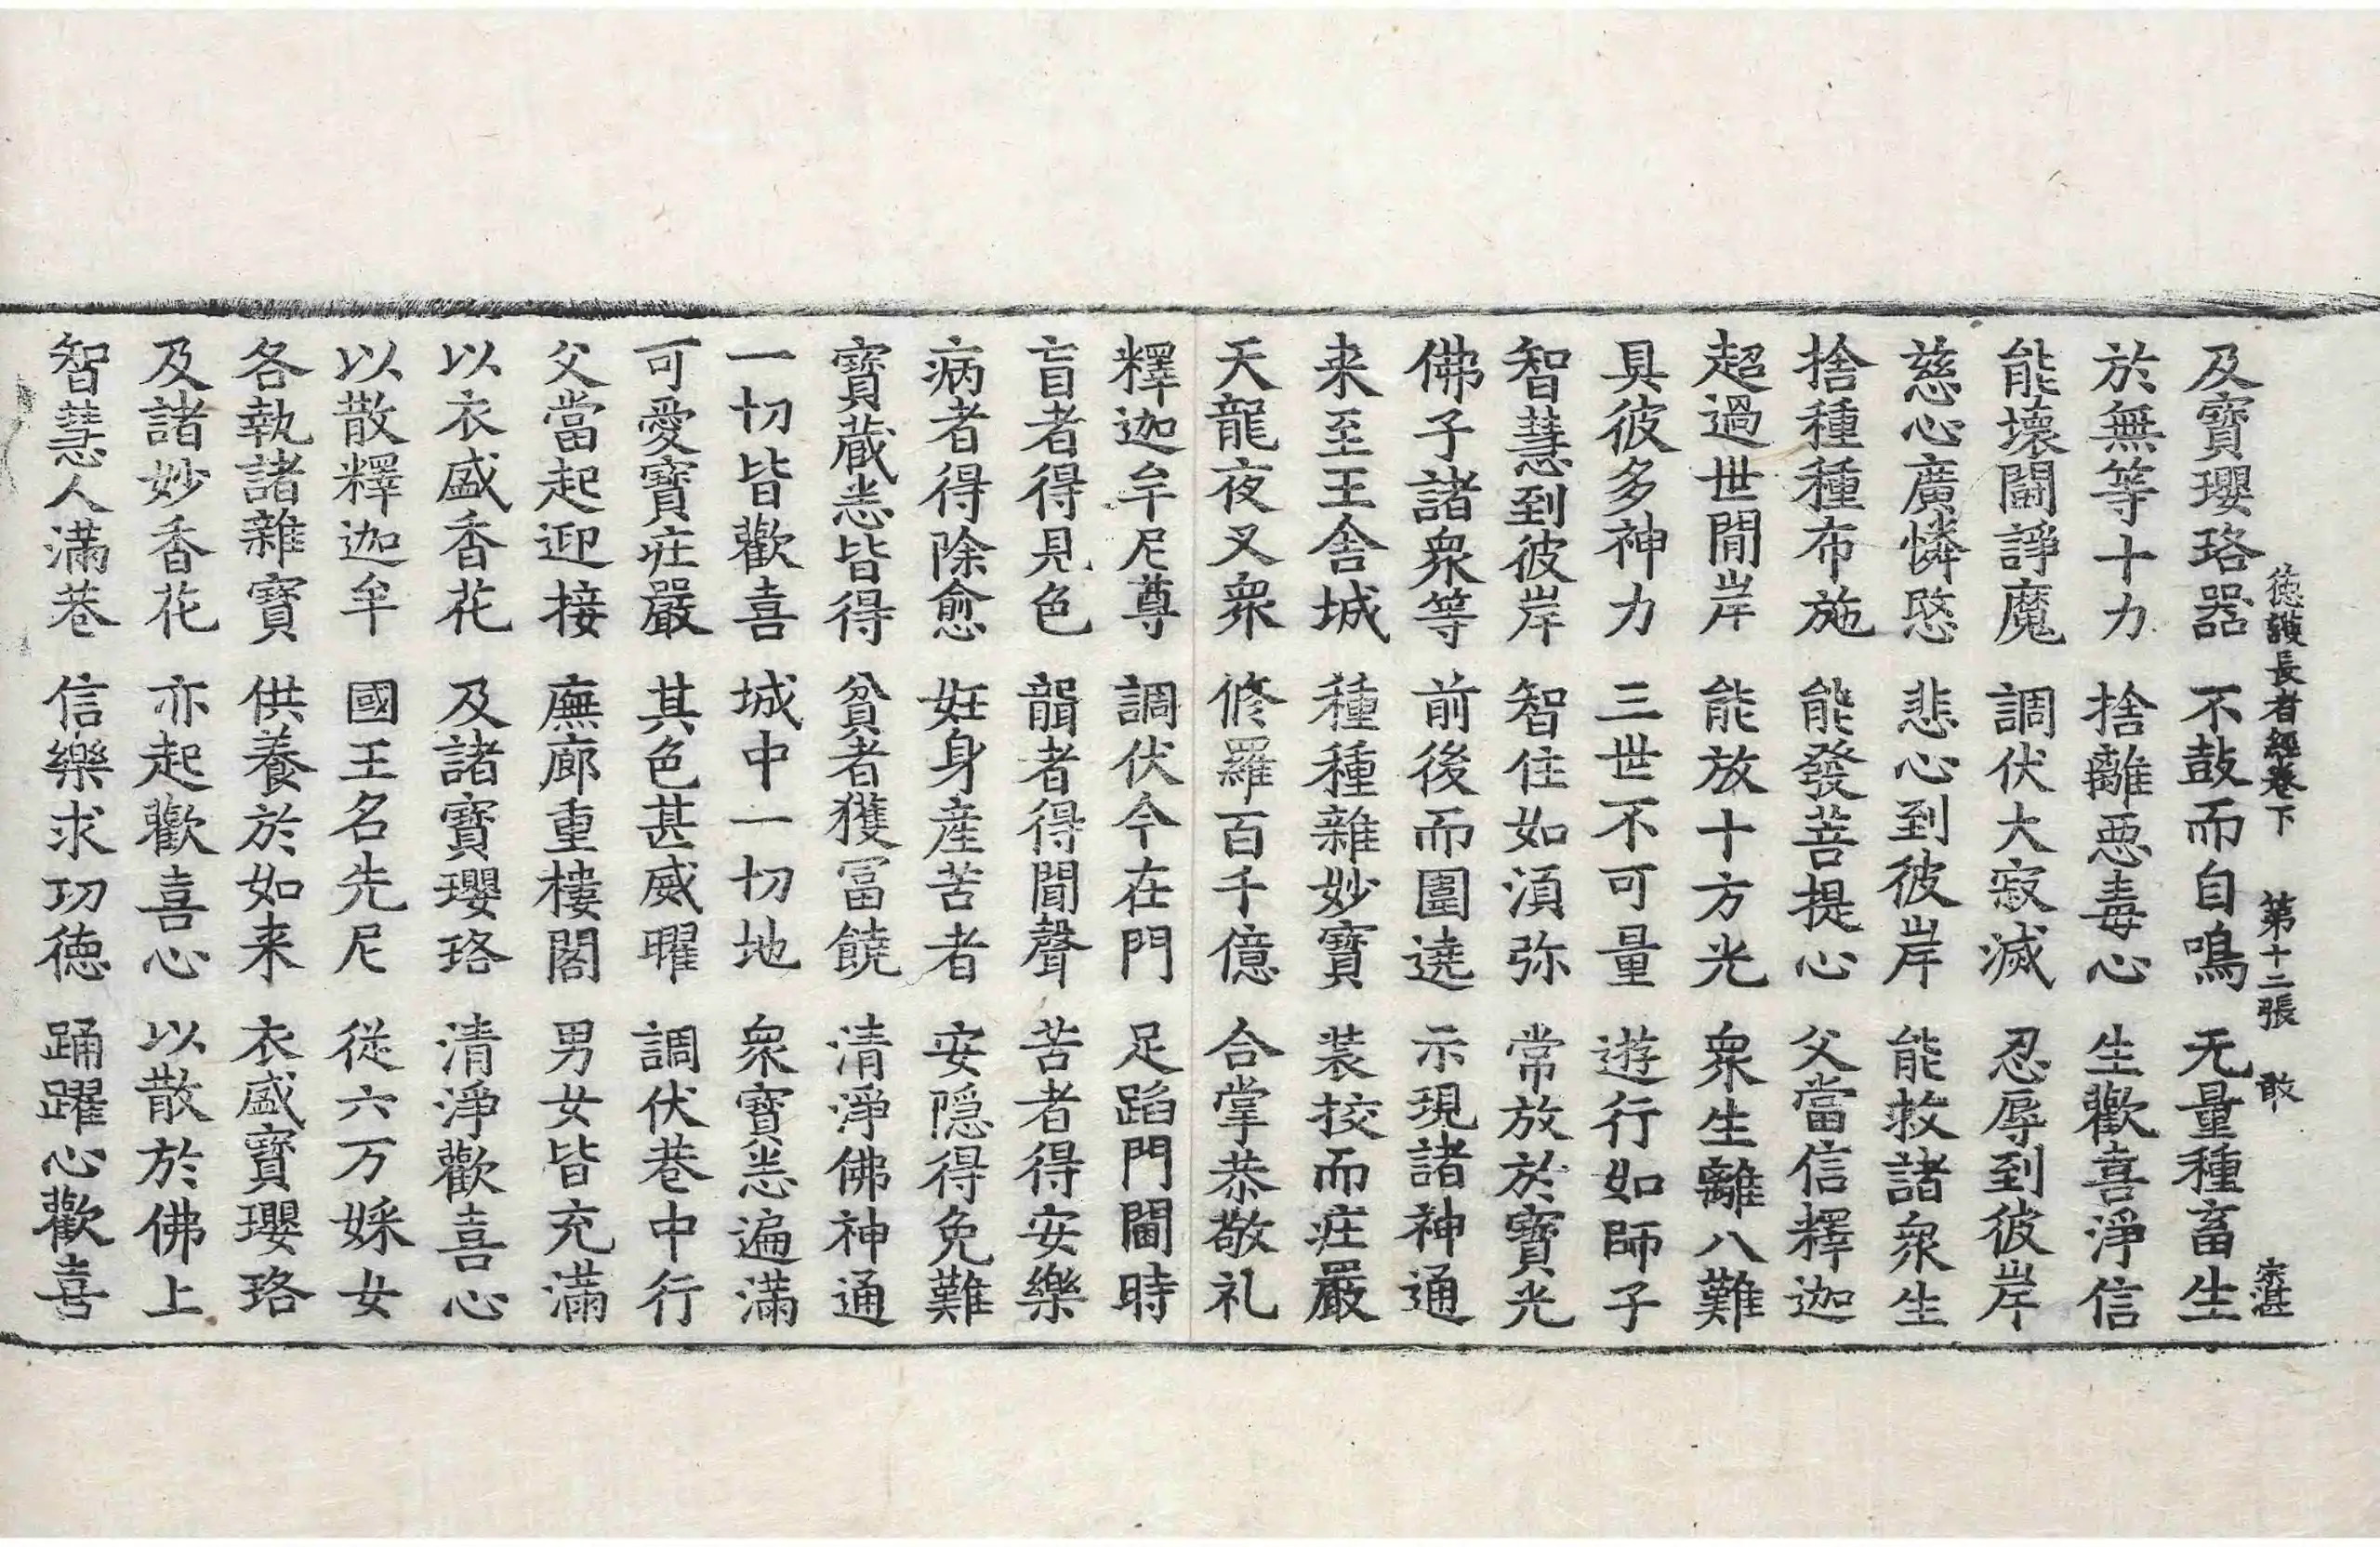 德護長者經卷下 第十二張 敢 宗湛
及寶瓔珞器 不鼓而自鳴 无量種畜生
於無等十力 捨離惡毒心 生歡喜淨信
能壞鬪諍魔 調伏大寂滅 忍辱到彼岸
慈心廣憐愍 悲心到彼岸 能救諸衆生
捨種種布施 能發菩提心 父當信釋迦
超過世間岸 能放十方光 衆生離八難
具彼多神力 三世不可量 遊行如師子
智慧到彼岸 智住如湏弥 常放於寶光
佛子諸衆等 前後而圍遶 示現諸神通
来至王舎城 種種雜妙寶 装挍而莊嚴
天龍夜叉衆 修羅百千億 合掌恭敬礼
釋迦牟尼尊 調伏今在門 足蹈門閫時
盲者得見色 聾者得聞聲 苦者得安樂
病者得除愈 妊身産苦者 安隠得免難
寶蔵悉皆得 貧者獲冨饒 清淨佛神通
一切皆歡喜 城中一切地 衆寶悉遍滿
可愛寶莊嚴 其色甚威曜 調伏巷中行
父當起迎接 廡廊重樓閣 男女皆充滿
以衣盛香花 及諸寶瓔珞 清淨歡喜心
以散釋迦牟 國王名先尼 従六万婇女
各執諸雜寶 供養於如来 衣盛寶瓔珞
及諸妙香花 亦起歡喜心 以散於佛上
智慧人滿巷 信樂求功德 踊躍心歡喜